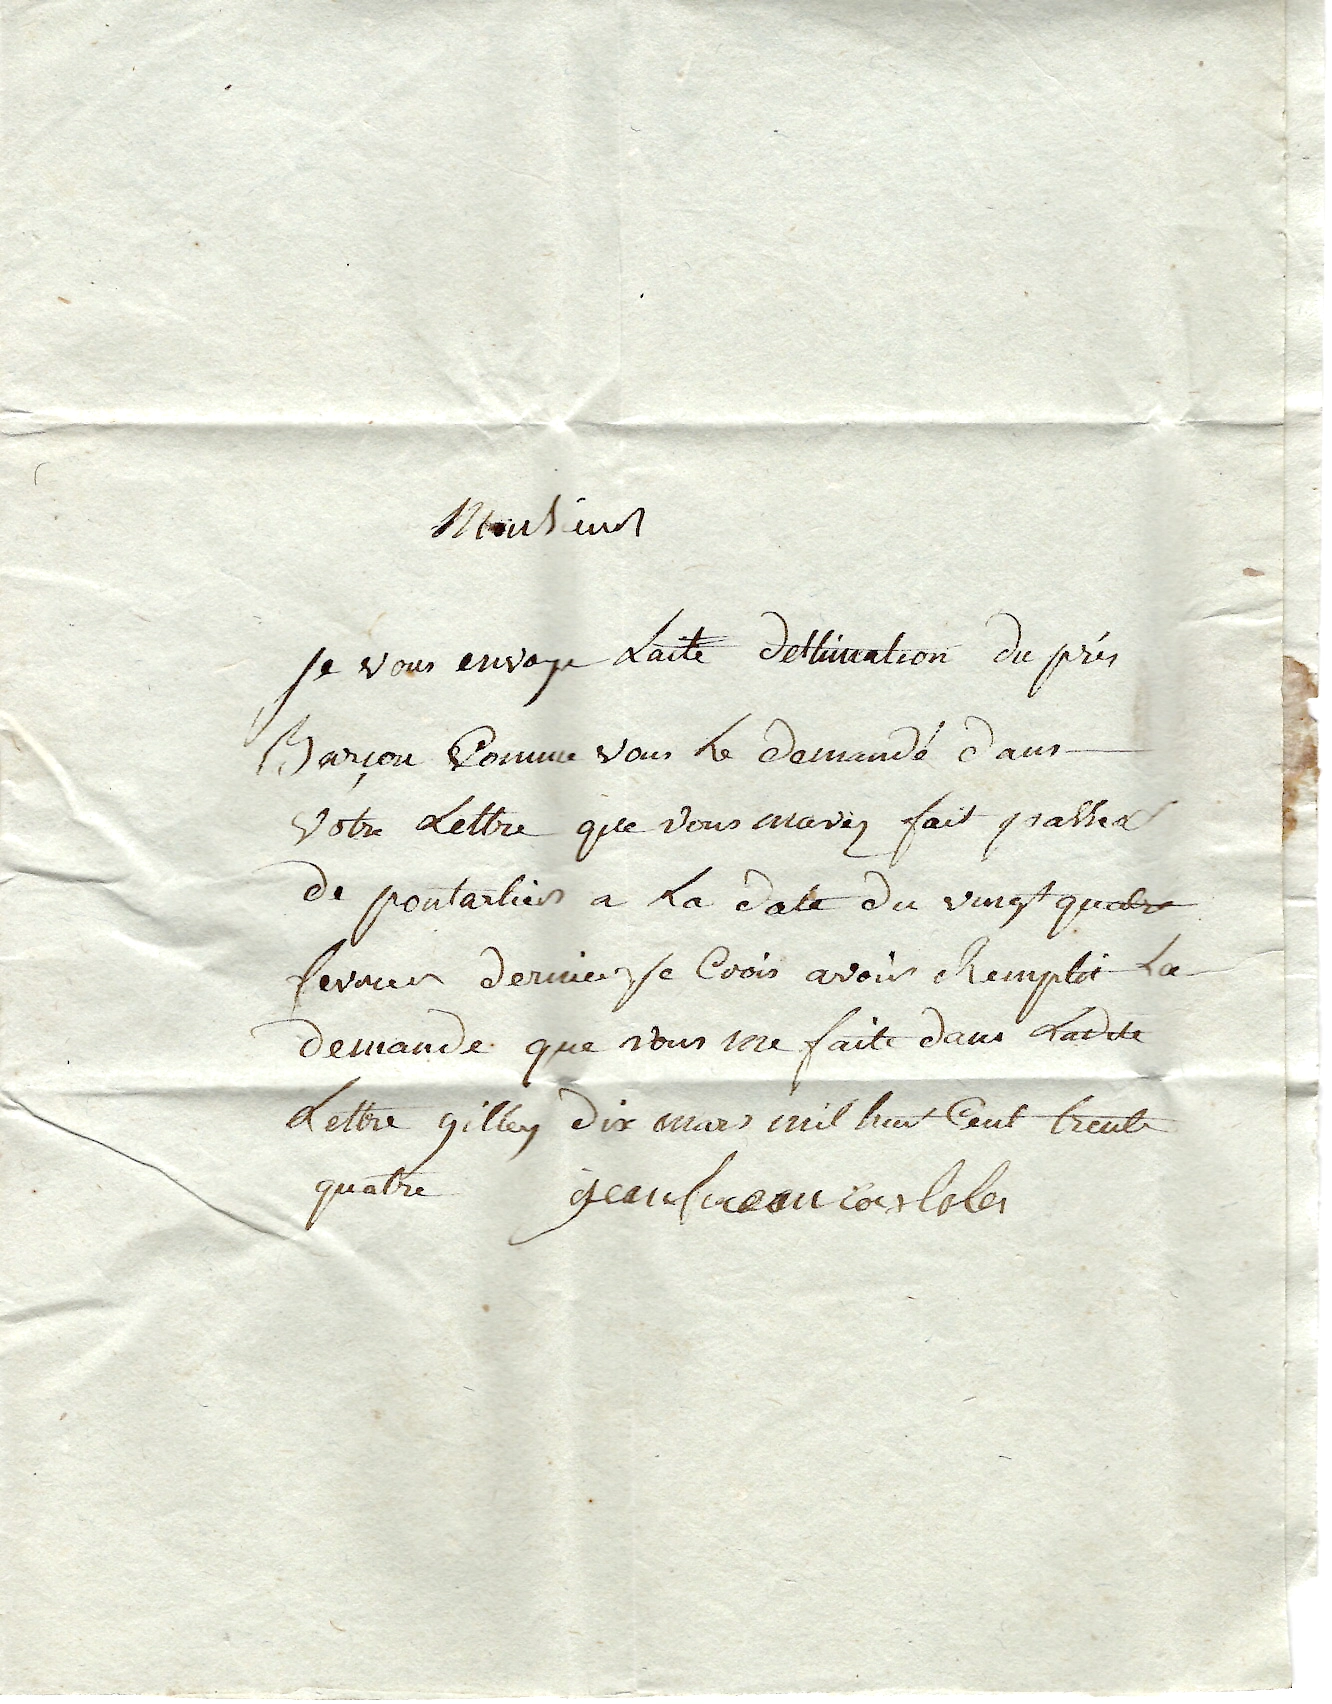 Monsieur
Je vous envoye Lacte destimation du prés
Barçon Comme vous Le demandé dans
votre Lettre que vous mavez fait passer
de pontarlier a La date du vingt quatre
fevrier dernier Je Crois avoir Remplit La
demande que vous me faite dans Ladite
Lettre gilley dix mars mil huit Cent trente
quatre